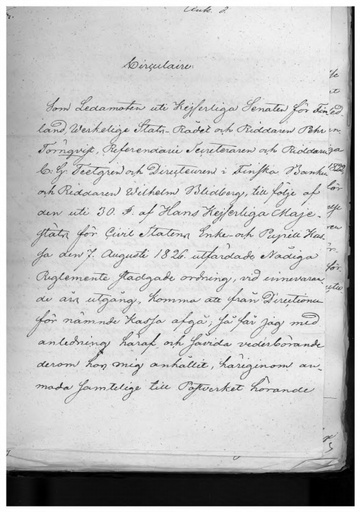 Circulaire.
Som Ledamoten uti Kejserliga Senaten för Fin
land, Werkelige Stats-Rådet och Riddaren Pehr
Törnqvist, Referendarie Secreteraren och Riddaren
C. Gr. Teetgren och Directeuren i Finska Banken
och Riddaren Wilhelm Blidberg, till följe af
den uti 30 §. af Hans Kejserliga Maje-
stäts för Civil Statens Enke- och Pupill Kas-
sa den 7. Augusti 1826 utfärdade Nådiga
Reglemente stadgade ordning, vid innevaran
de års utgång, komma att från Directionen
för nämnde Kassa afgå, så får jag med
anledning häraf och såvida vederbörande
derom hos mig anhållit, härigenom an-
moda samtelige till Postverket hörande